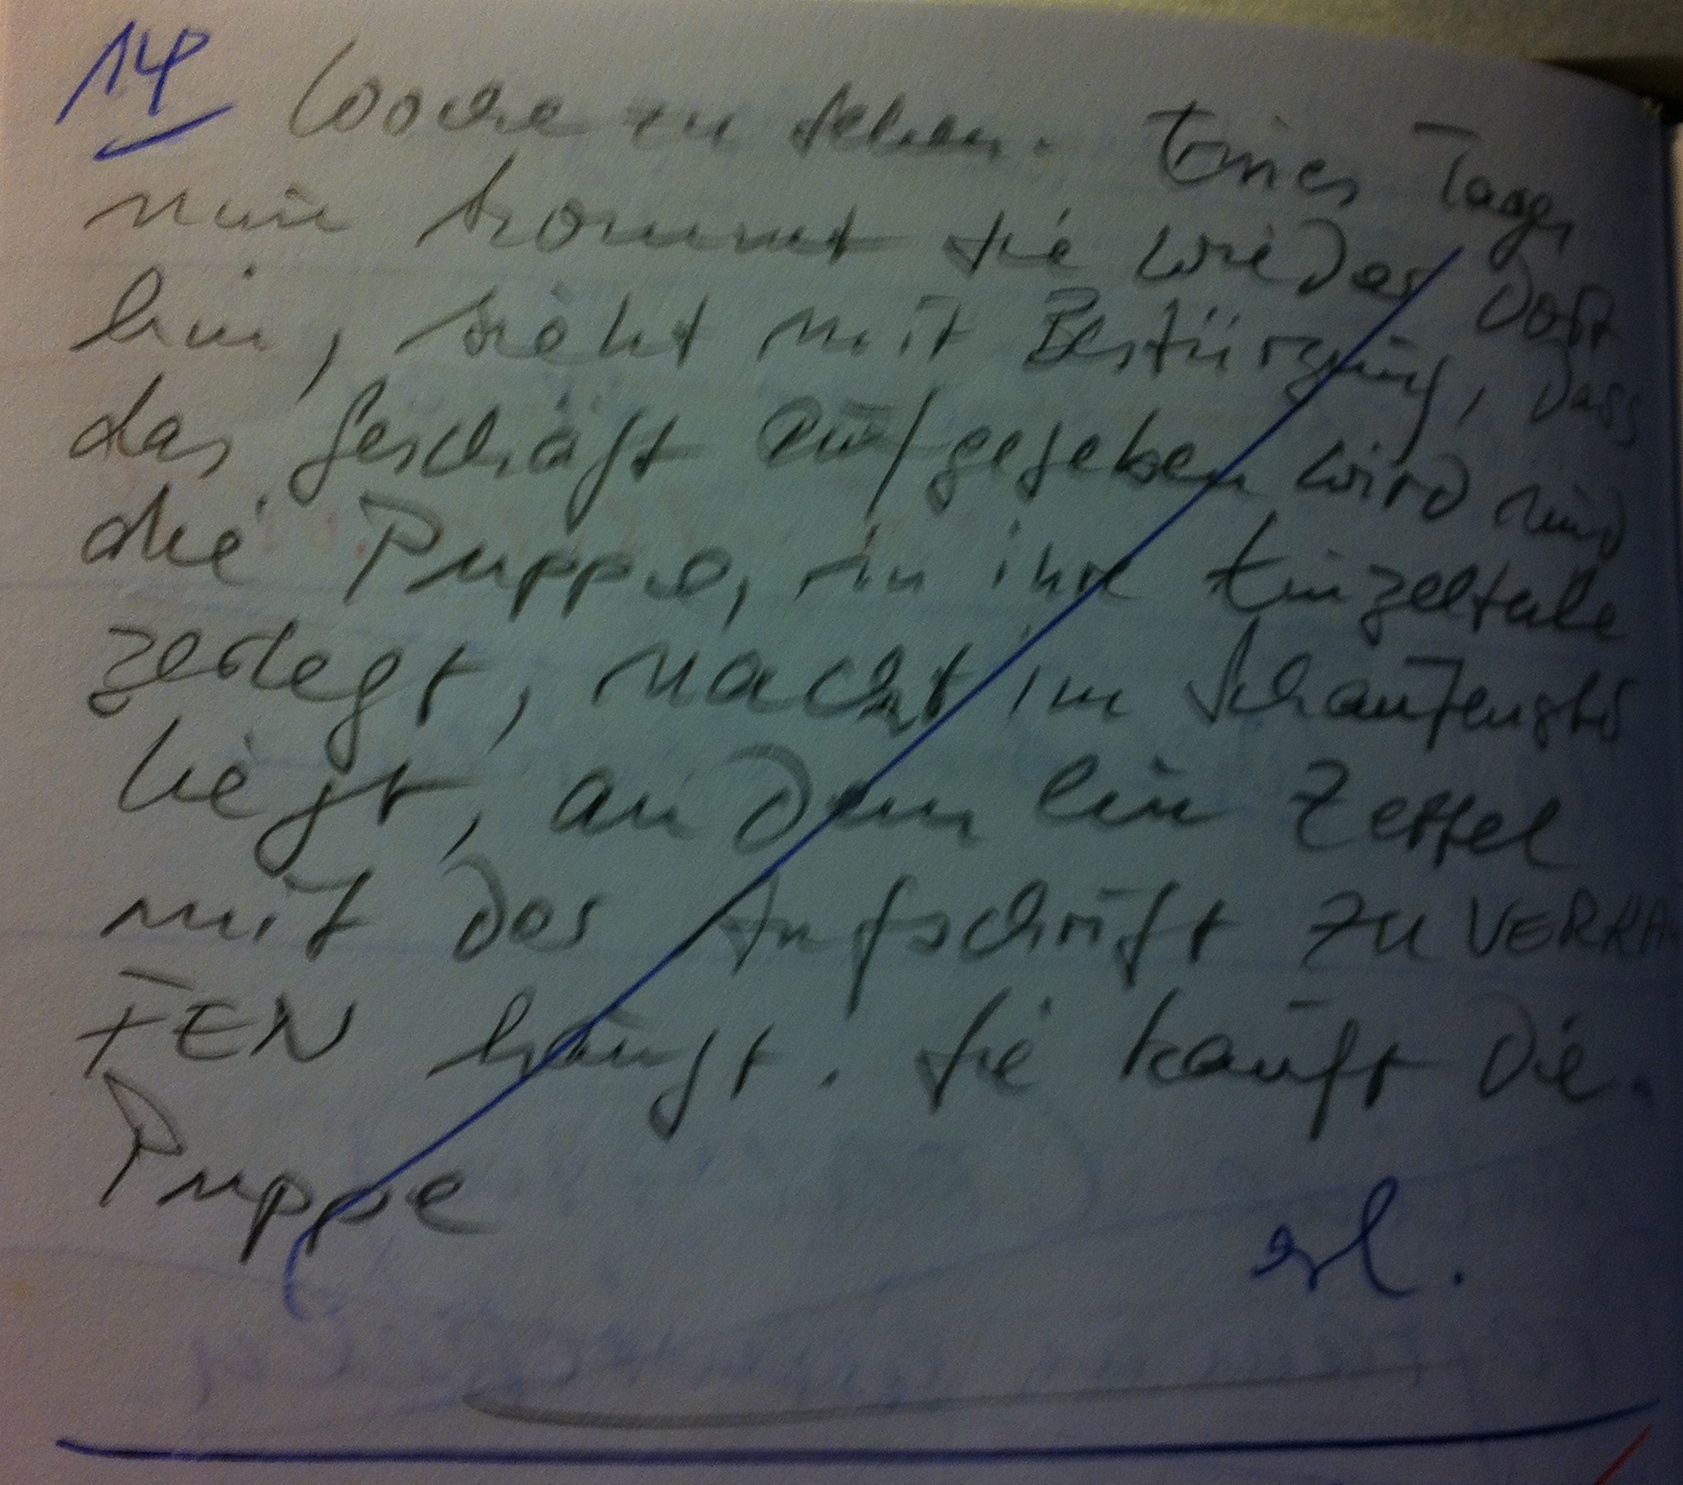 14 Woche zu sehen. Eines Tages
nun kommt sie wieder dort
hin, sieht mit Bestürzung, dass
das Geschäft aufgegeben wird und
die Puppe, in ihre Einzelteile
zerlegt, nackt im Schaufenster
liegt, an dem ein Zettel
mit der Aufschrift ZU VERKAU
FEN hängt. Sie kauft die
Puppe
erl.